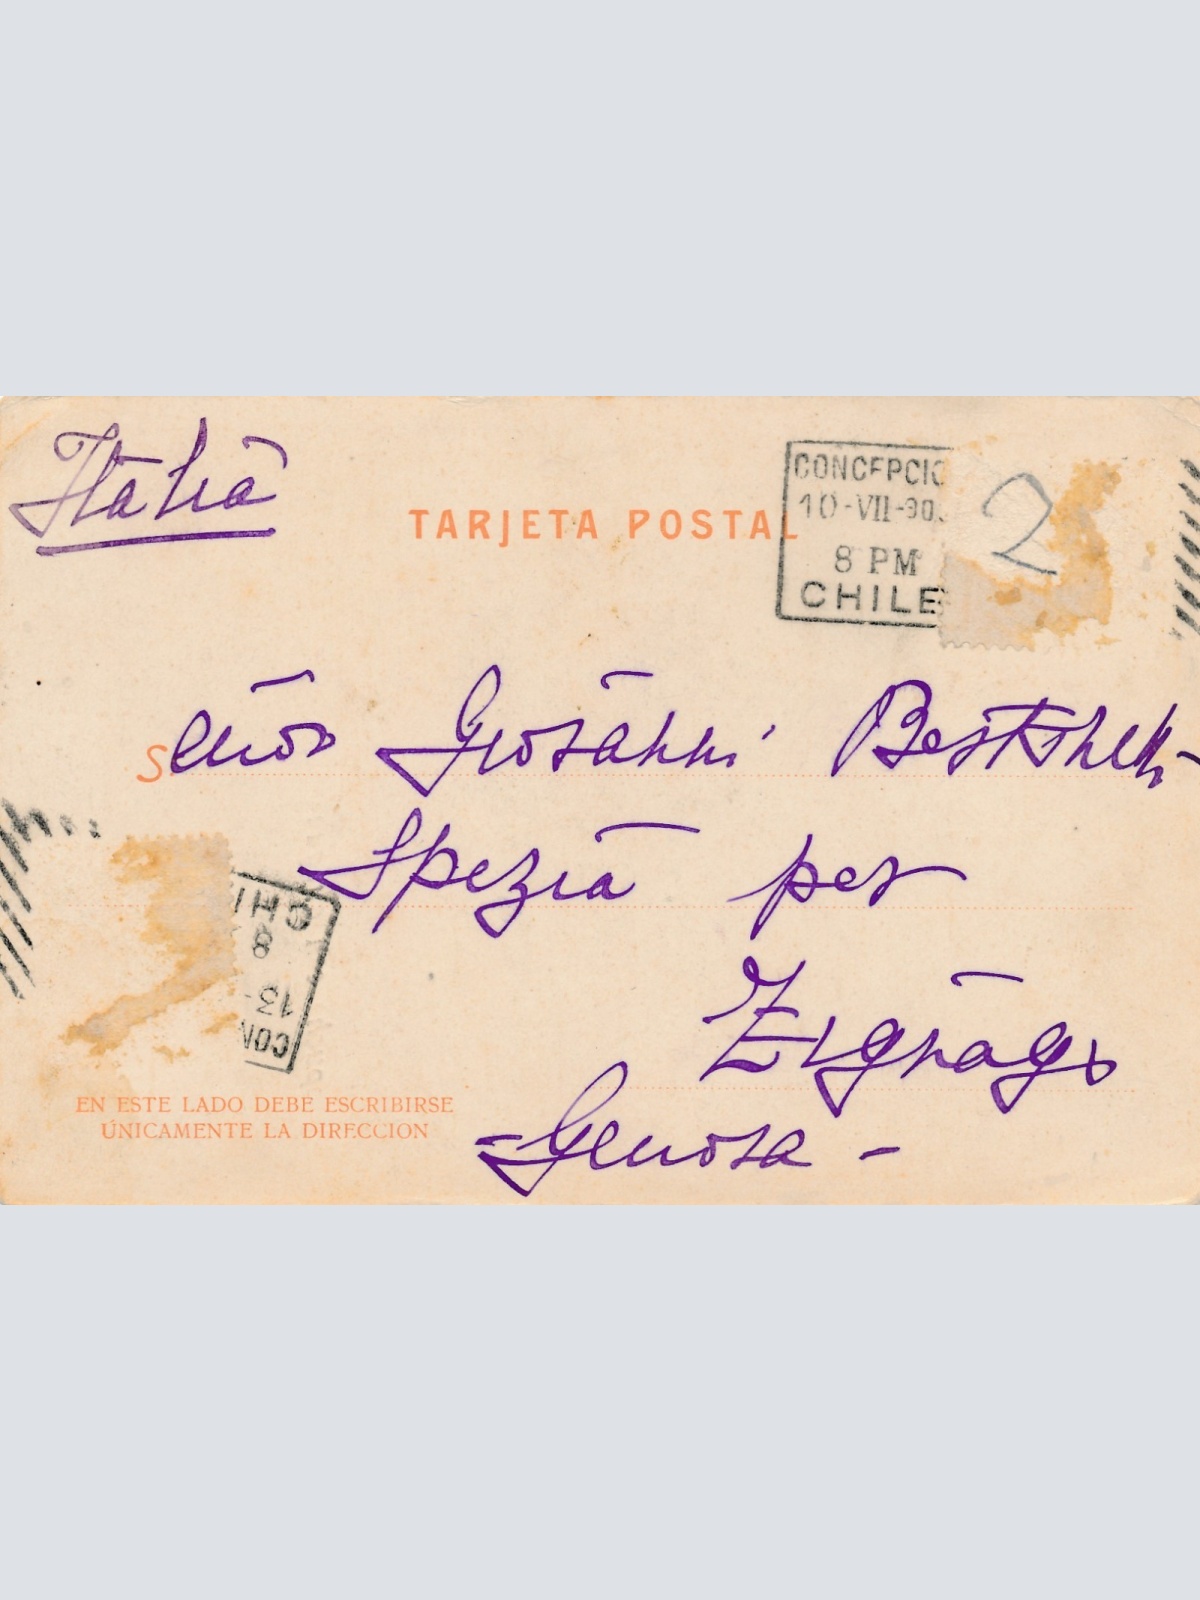 Italia
TARJETA POSTAL
CONCEPCIO
10-VII-90
8 PM
CHILE
2
Señor Giovanni
Spezia per
Zignago
- Genova -
CHI
8
13-
CON
EN ESTE LADO DEBE ESCRIBIRSE
ÚNICAMENTE LA DIRECCION